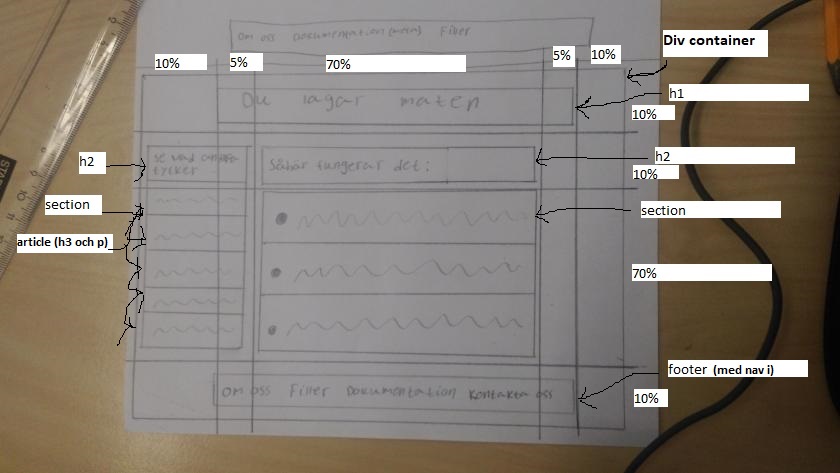 Om oss Dokumentation(meta) Filer
10% 5% 70% 5% 10%
Div container
Du lagar maten
h1
10%
h2
se vad andra
tycker
Såhär fungerar det:
h2
10%
section
section
article (h3 och p)
70%
footer (med nav i)
Om oss Filer Dokumentation Kontakta oss
10%